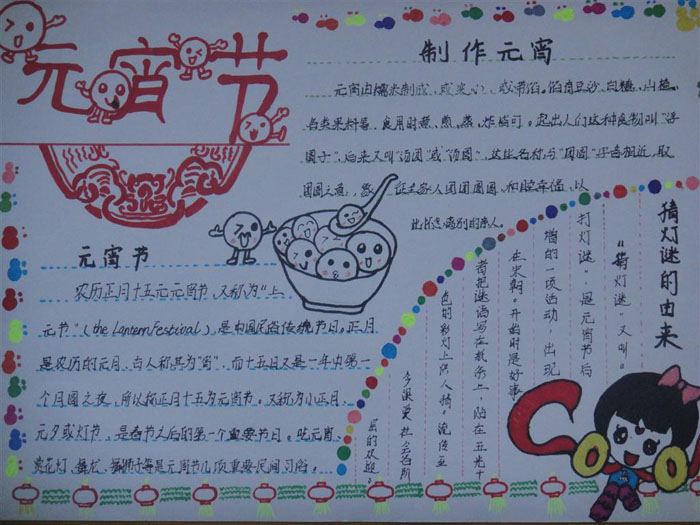 元宵节
制作元宵
元宵由糯米制成，或实心，或带馅。馅有豆沙、白糖、山楂、
各类果料等，食用时煮、煎、蒸、炸皆可。起初人们这种食物叫“浮
圆子”，后来又叫“汤团”或“汤圆”，这些名称与“团圆”字音相近，取
团圆之意，象征全家人团团圆圆，和睦幸福，以
此怀念离别的亲人
元宵节
农历正月十五元元宵节，又称为“上
元节”（the Lantern Festival），是中国民俗传统节日。正月
是农历的元月，古人称其为“宵”，而十五日又是一年中第一
个月圆之夜，所以称正月十五为元宵节。又称为小正月、
元夕或灯节，是春节之后的第一个重要节日。吃元宵、
赏花灯、舞龙、舞狮子等是元宵节几项重要民间习俗。
猜灯谜的由来
“猜灯谜”又叫“
打灯谜”，是元宵节后
增的一项活动，出现
在宋朝。开始时是好事
者把谜语写在纸条上，贴在五光十
色的彩灯上供人猜。流传至
今深受社会各阶
层的欢迎。